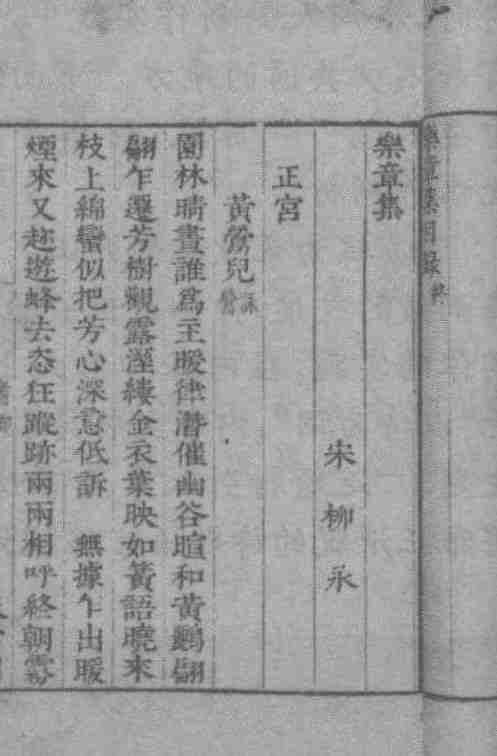 樂章集目錄終
樂章集
宋柳永
正宮
黃鶯兒詠鶯
園林晴晝誰為主暖律潛催幽谷暄和黃鸝翩
翩乍遷芳樹觀露溼縷金衣葉映如簧語曉來
枝上綿蠻似把芳心深意低訴　無據乍出暖
煙來又趂遊蜂去恣狂蹤跡兩兩相呼終朝霧